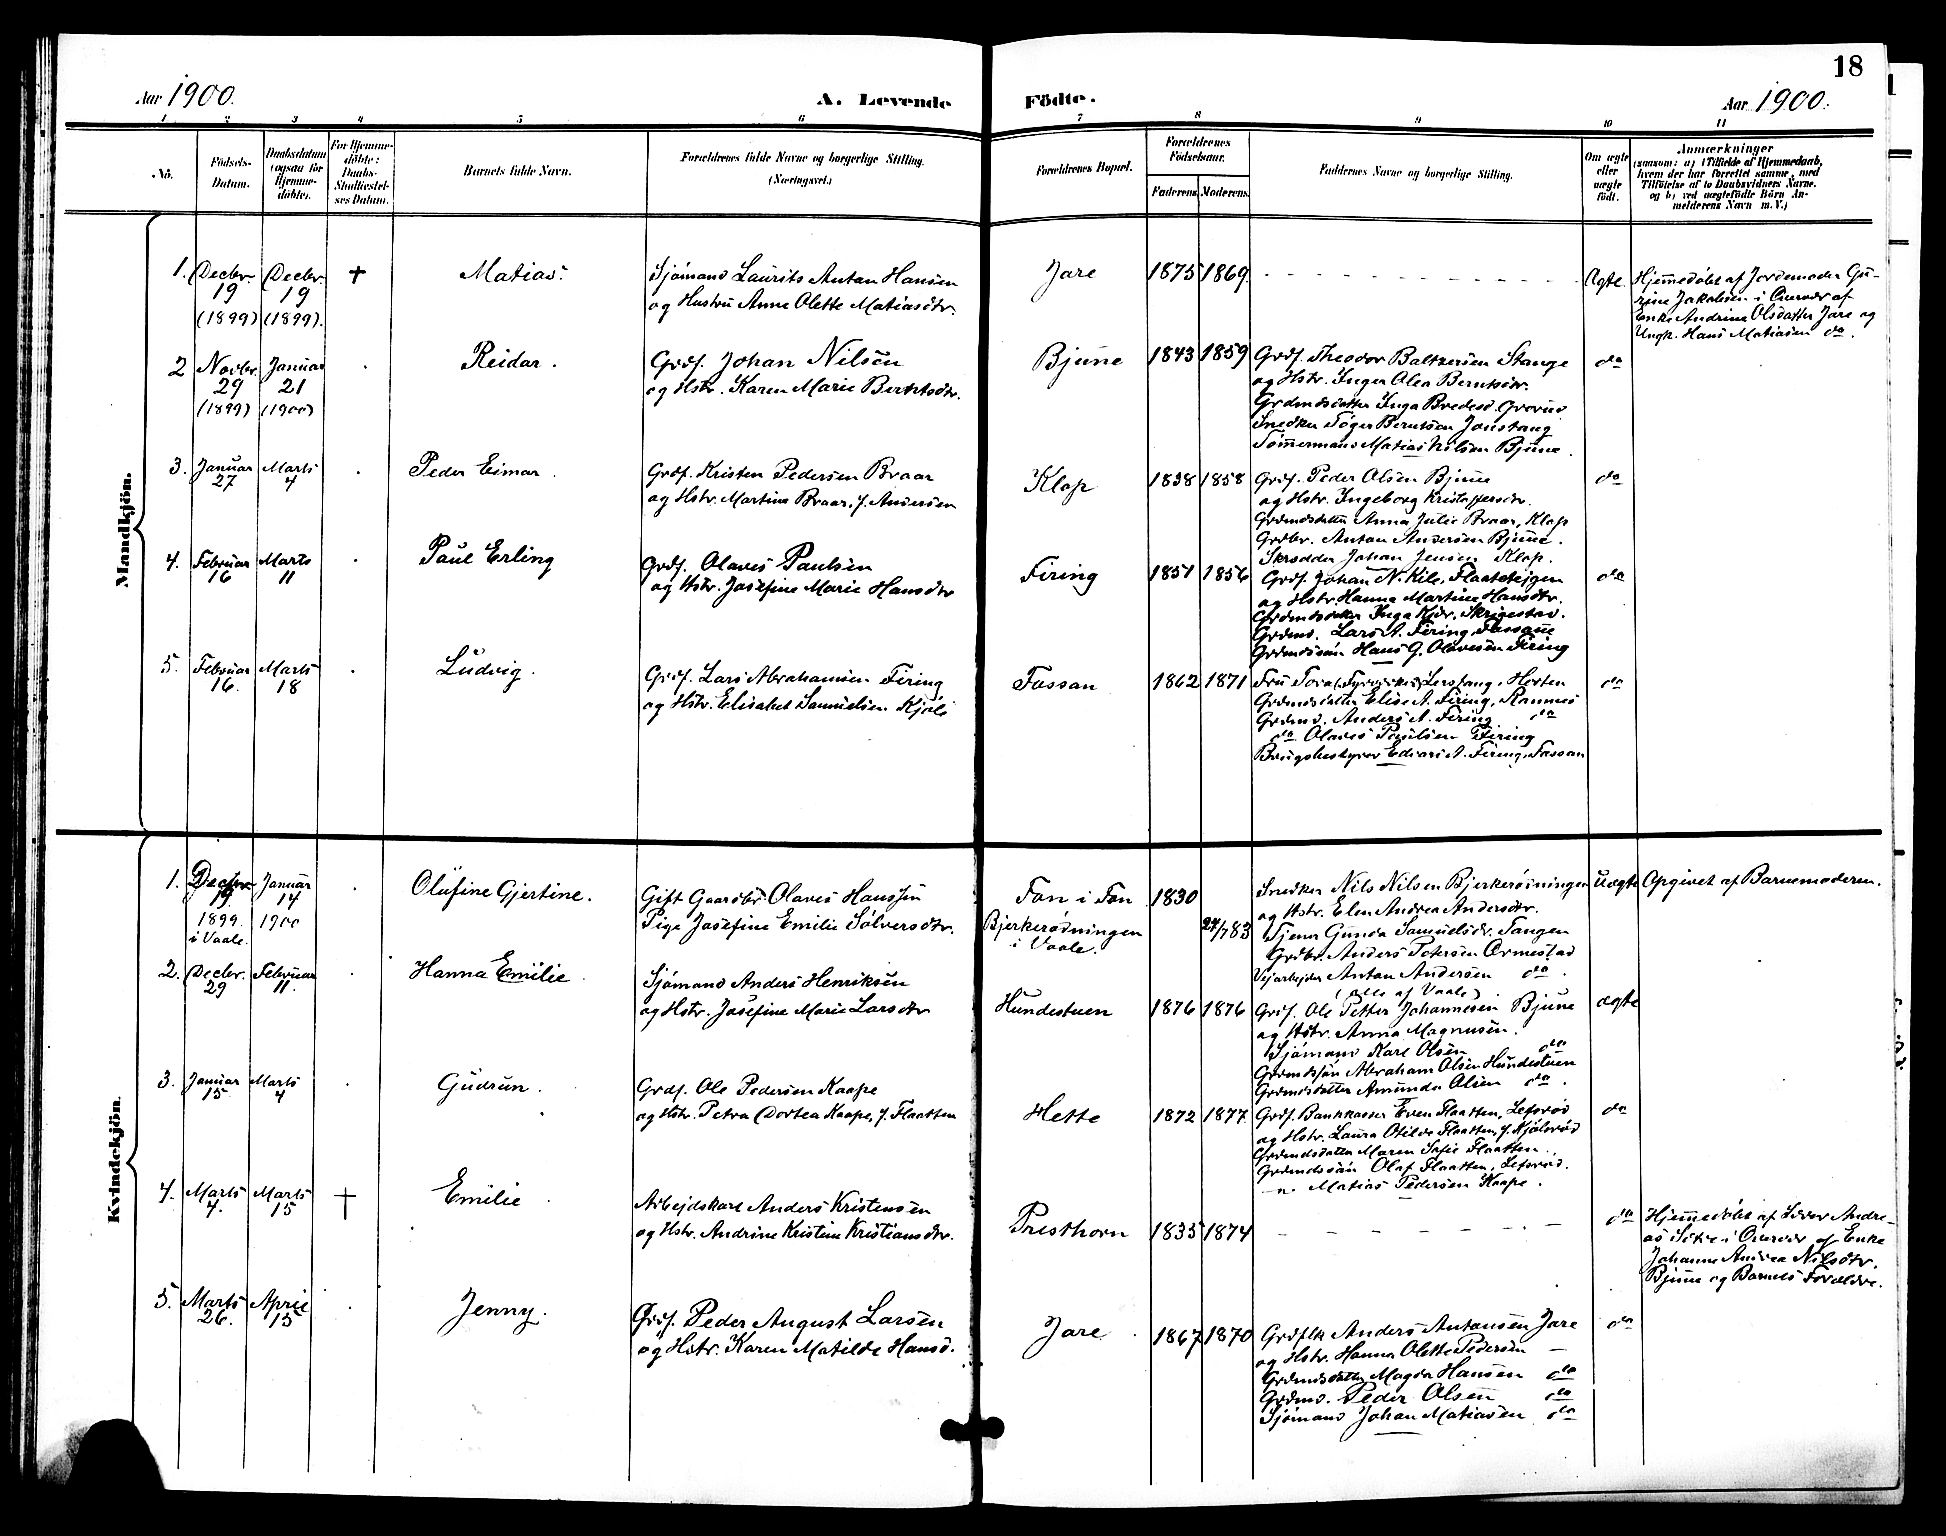 18
Aar 1900.
A. Levende Födte.
Aar 1900.
1 2 3 4 5 6 7 8 9 10 11
No.
Födsels-
Datum.
Daabsdatum
(ogsaa for
Hjemme-
døbte).
For Hjemme-
døbte:
Daabs-
Stadfæstel-
ses Datum.
Barnets fulde Navn.
Forældrenes fulde Navne og borgerlige Stilling.
(Næringsvei.)
Forældrenes Bopæl.
Forældrenes
Födselsaar.
Faderens. Moderens.
Faddernes Navne og borgerlige Stilling.
Om ægte
eller
uægte
født.
Anmærkninger
(saasom: a) i Tilfælde af Hjemmedaab,
hvem der har forrettet samme, med
Tilføielse af to Daabsvidners Navne.
og b) ved uægtefödte Börn An-
melderens Navn m. V.)
Mandkjön.
1. Decbr. 19 (1899) Decbr. 19 (1899). + Matias.
Sjömand Laurits Antan Hansen
og Hustru Anne Olette Matiasdtr.
Jare 1875 1869. Ægte
Hjemmedøbt af Jordemoder Gu-
rine Jakobsen i Overvær af
Enke Andrine Olsdatter Jare og
Ungk. Hans Matiasen do.
2 Novbr. 29 (1899) Januar 21 (1900) Reidar.
Grdf. Johan Nilsen
og Hstr. Karen Marie Berntsdtr.
Bjune 1843 1859
Grdf. Theodor Baltzersen Stange
og Hstr. Inger Olea Berntsdtr.
Grdmdsdatter Inga Bredesd.
Snedker Töger Berntsen Jonstang
Tömmermand Matias Nilsen Bjune.
do
3. Januar 27 Marts 4 Peder Eimar.
Grdf. Kristen Pedersen Braar
og Hstr. Martine Braar, f. Andersen
Klop 1838 1858
Grdf. Peder Olsen Bjune
og Hstr. Ingeborg Kristoffersdtr.
Grdmdsdatter Anna Julie Braar, Klop
Grdbr. Antan Andersen Bjune.
Skrædder Johan Jensen Klop.
do
4. Februar 16 Marts 11 Paul Erling
Grdf. Olaves Paulsen
og Hstr. Josefine Marie Hansdtr
Firing 1851 1856
Grdf. Johan N. Kile, Flaateteigen
og Hstr. Hanna Martine Hansdtr.
Grdmdsdatter Inga Kjær, Skrigestad.
Grdmd. Lars A. Firing, Fassane
Grdmdssön Hans G. Olavesen Firing
do
5. Februar 16. Marts 18 Ludvig.
Grdf. Lars Abrahamsen Firing
og Hstr. Elisabet Samuelsen Kjöle
Fassan 1862 1871
Fru Tora Horten
Grdmdsdatter Elise A. Firing, Rannes
Grdmd. Anders A. Firing do
do Olaves Paulsen Firing
Brugsbestyrer Edvard A. Firing, Fassan
do
Kvindekjön.
1. Decbr 19 1899. i Vaale. Januar 14 1900 Olufine Gjertine.
Gift Gaardbr. Olaves Hanssen
Pige Josefine Emilie Sölversdtr.
Fon i Fon
Bjerkerødningen
i Vaale.
1830 24/7 83
Snedker Nils Nilsen Bjerkerødningen
og Hstr. Elen Andrea Andersdtr.
Tjener Gunda Samuelsdr. Tangen
Grdbr. Anders Petersen Ormestad
Veiarbeider Antan Andersen do.
(alle af Vaale)
Uægte Opgivet af Barnemoderen.
2. Decbr. 29 Februar 11. Hanna Emilie
Sjömand Anders Henriksen
og Hstr. Josefine Marie Larsdtr
Hundestuen 1876 1876
Grdf. Ole Petter Johannesen Bjune
og Hstr. Anna Magnusen.
Sjömand Karl Olsen do
Grdmdssön Abraham Olsen Hundestuen
Grdmdsdatter Amunda Olsen do.
ægte
3. Januar 15 Marts 4 Gudrun.
Grdf. Ole Pedersen Kaape
og Hstr. Petra Dortea Kaape, f. Flaatten
Hette 1872 1877
Grdf. Bankkasser Even Flaatten, Lefsrød
og Hstr. Laura Otilde Flaatten, f. Kjölsrød
Grdmdsdatter Maren Sofie Flaatten.
Grdmdssön Olaf Flaatten, Lefsrød.
— " — Matias Pedersen Kaape.
do
4. Marts 4. Marts 15 + Emilie
Arbejdskarl Anders Kristensen
og Hstr. Andrine Kristine Kristiansdtr.
Presthorn 1835 1874 do
Hjemmedøbt af Andre-
as i Overvær af Enke
Johanne Andrea Nilsdtr.
Bjune og Barnets Forældre.
5. Marts 26. April 15 Jenny.
Grdf. Peder August Larsen
og Hstr. Karen Matilde Hansd.
Jare. 1867 1870
Grdflk Anders Antansen Jare
og Hstr. Hanna Olette Pedersen —
Grdmdsdatter Magda Hansen do
Grdmd. Peder Olsen do
Sjömand Johan Matiasen do
do